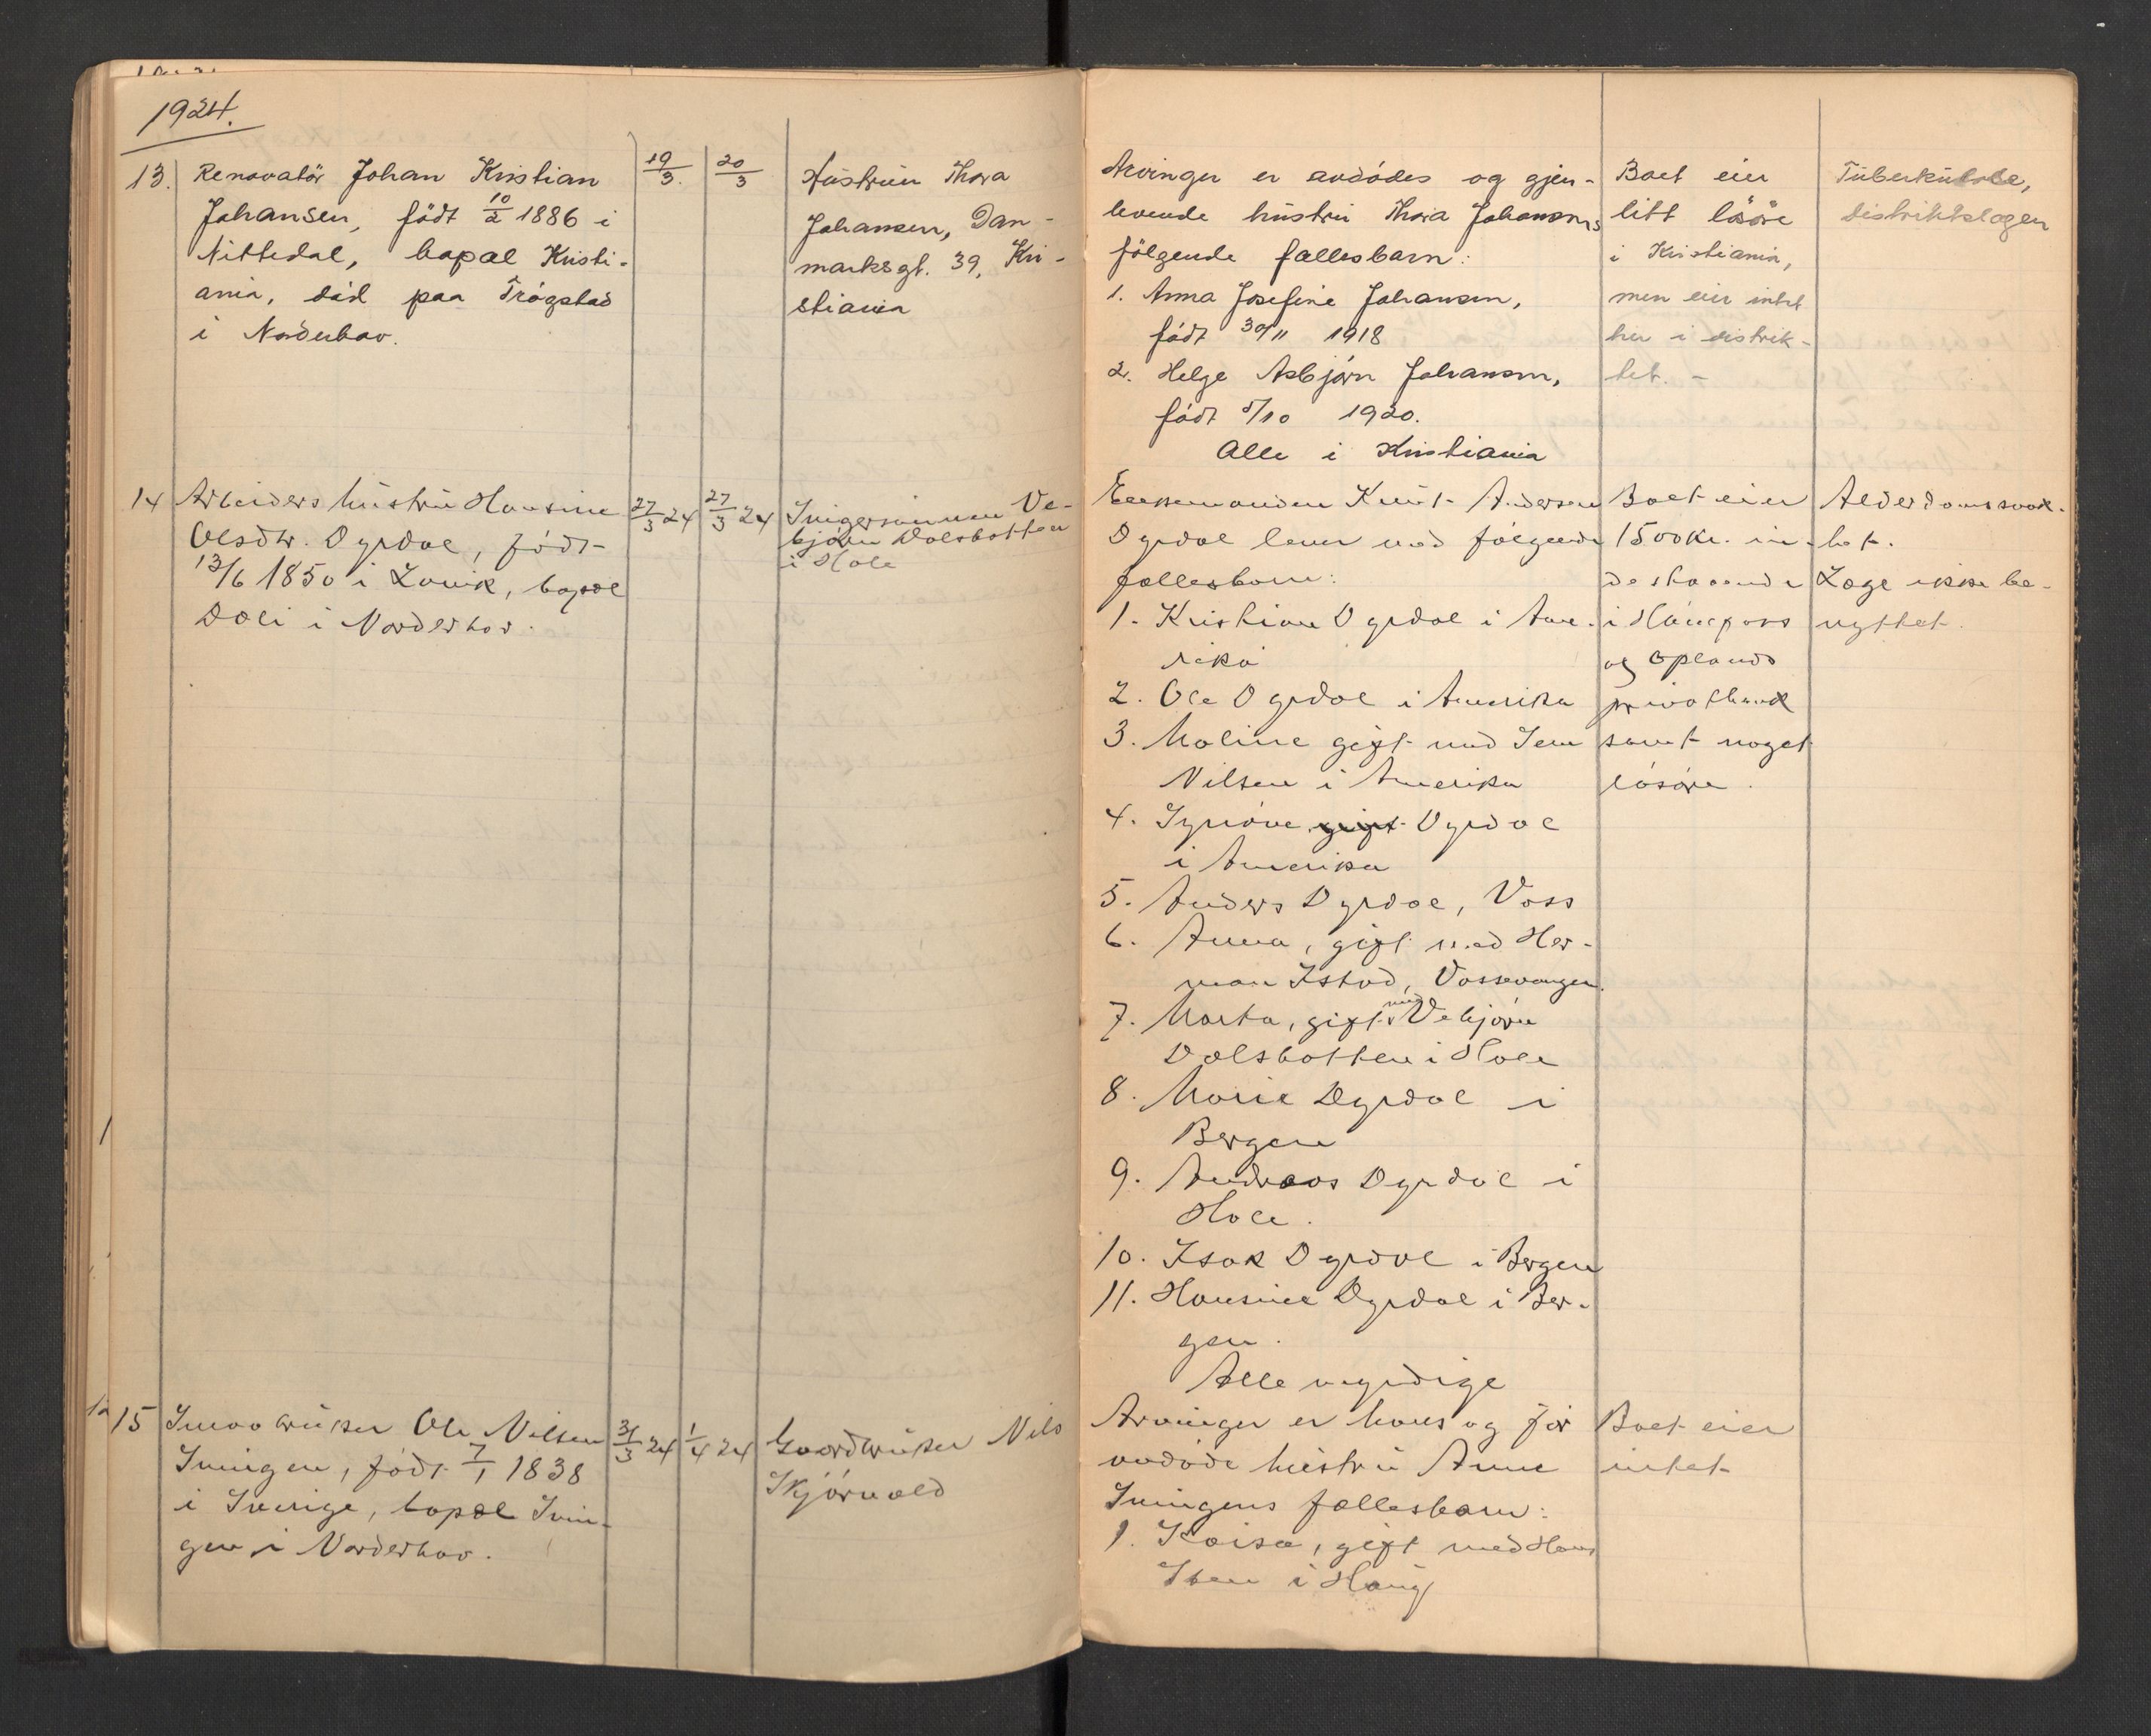 1924.
13.
Renovatör Johan Kristian
Johansen, födt 10/2 1886 i
Nittedal, bopæl Kristi-
ania, död paa Trögstad
i Norderhov.
19/3.
20/3
Hustruen Thora
Johansen, Dan-
marksgt. 39, Kri-
stiania
Arvinger er avdödes og gjen-
levende hustru Thora Johansens
fölgende fællesbarn:
1. Anna Josefine Johansen,
födt 30/11 1918
2. Helge Asbjörn Johansen,
födt 5/10 1920.
Alle i Kristiania
Boet eier
litt lösöre
i Kristiania,
men eier intet
her i distrik-
tet. -
Tuberkulose,
distriktslægen
14
Arbeiders hustru Hansine
Olsdtr. Dyrdal, födt
13/6 1850 i Lavik, bopæl
Dæli i Norderhov.
27/3 24
27/3 24
Svigersönnen Ve-
björn Dalsbotten
i Hole
Enkemanden Knut Andersen
Dyrdal lever med fölgende
fællesbarn:
1. Kristian Dyrdal i Ame-
rika
2. Ole Dyrdal i Amerika
3. Maline gift med Jens
Nilsen i Amerika
4. Synöve gift Dyrdal
i Amerika
5. Anders Dyrdal, Voss
6. Anna, gift med Her-
man Istad, Vossevangen.
7. Marta, gift med Vebjörn
Dalsbotten i Hole
8. Marie Dyrdal i
Bergen
9. Andreas Dyrdal i
Hole.
10. Isak Dyrdal i Bergen
11. Hansine Dyrdal i Ber-
gen.
Alle myndige
Boet eier
1500 kr. in-
destaaende
i Hönefoss
og Oplands
privatbank
samt noget
lösöre.
Alderdomssvak-
het.
Læge ikke be-
nyttet.
15
Smaabruker Ole Nilsen
Svingen, födt 7/1 1838
i Sverige, bopæl Svin-
gen i Norderhov.
31/3 24
1/4 24
Gaardbruker Nils
Skjörvold
Arvinger er hans og för
avdöde hustru Anne
Svingens fællesbarn:
1. Kaisa, gift med Hans
Steen i Haug
Boet eier
intet